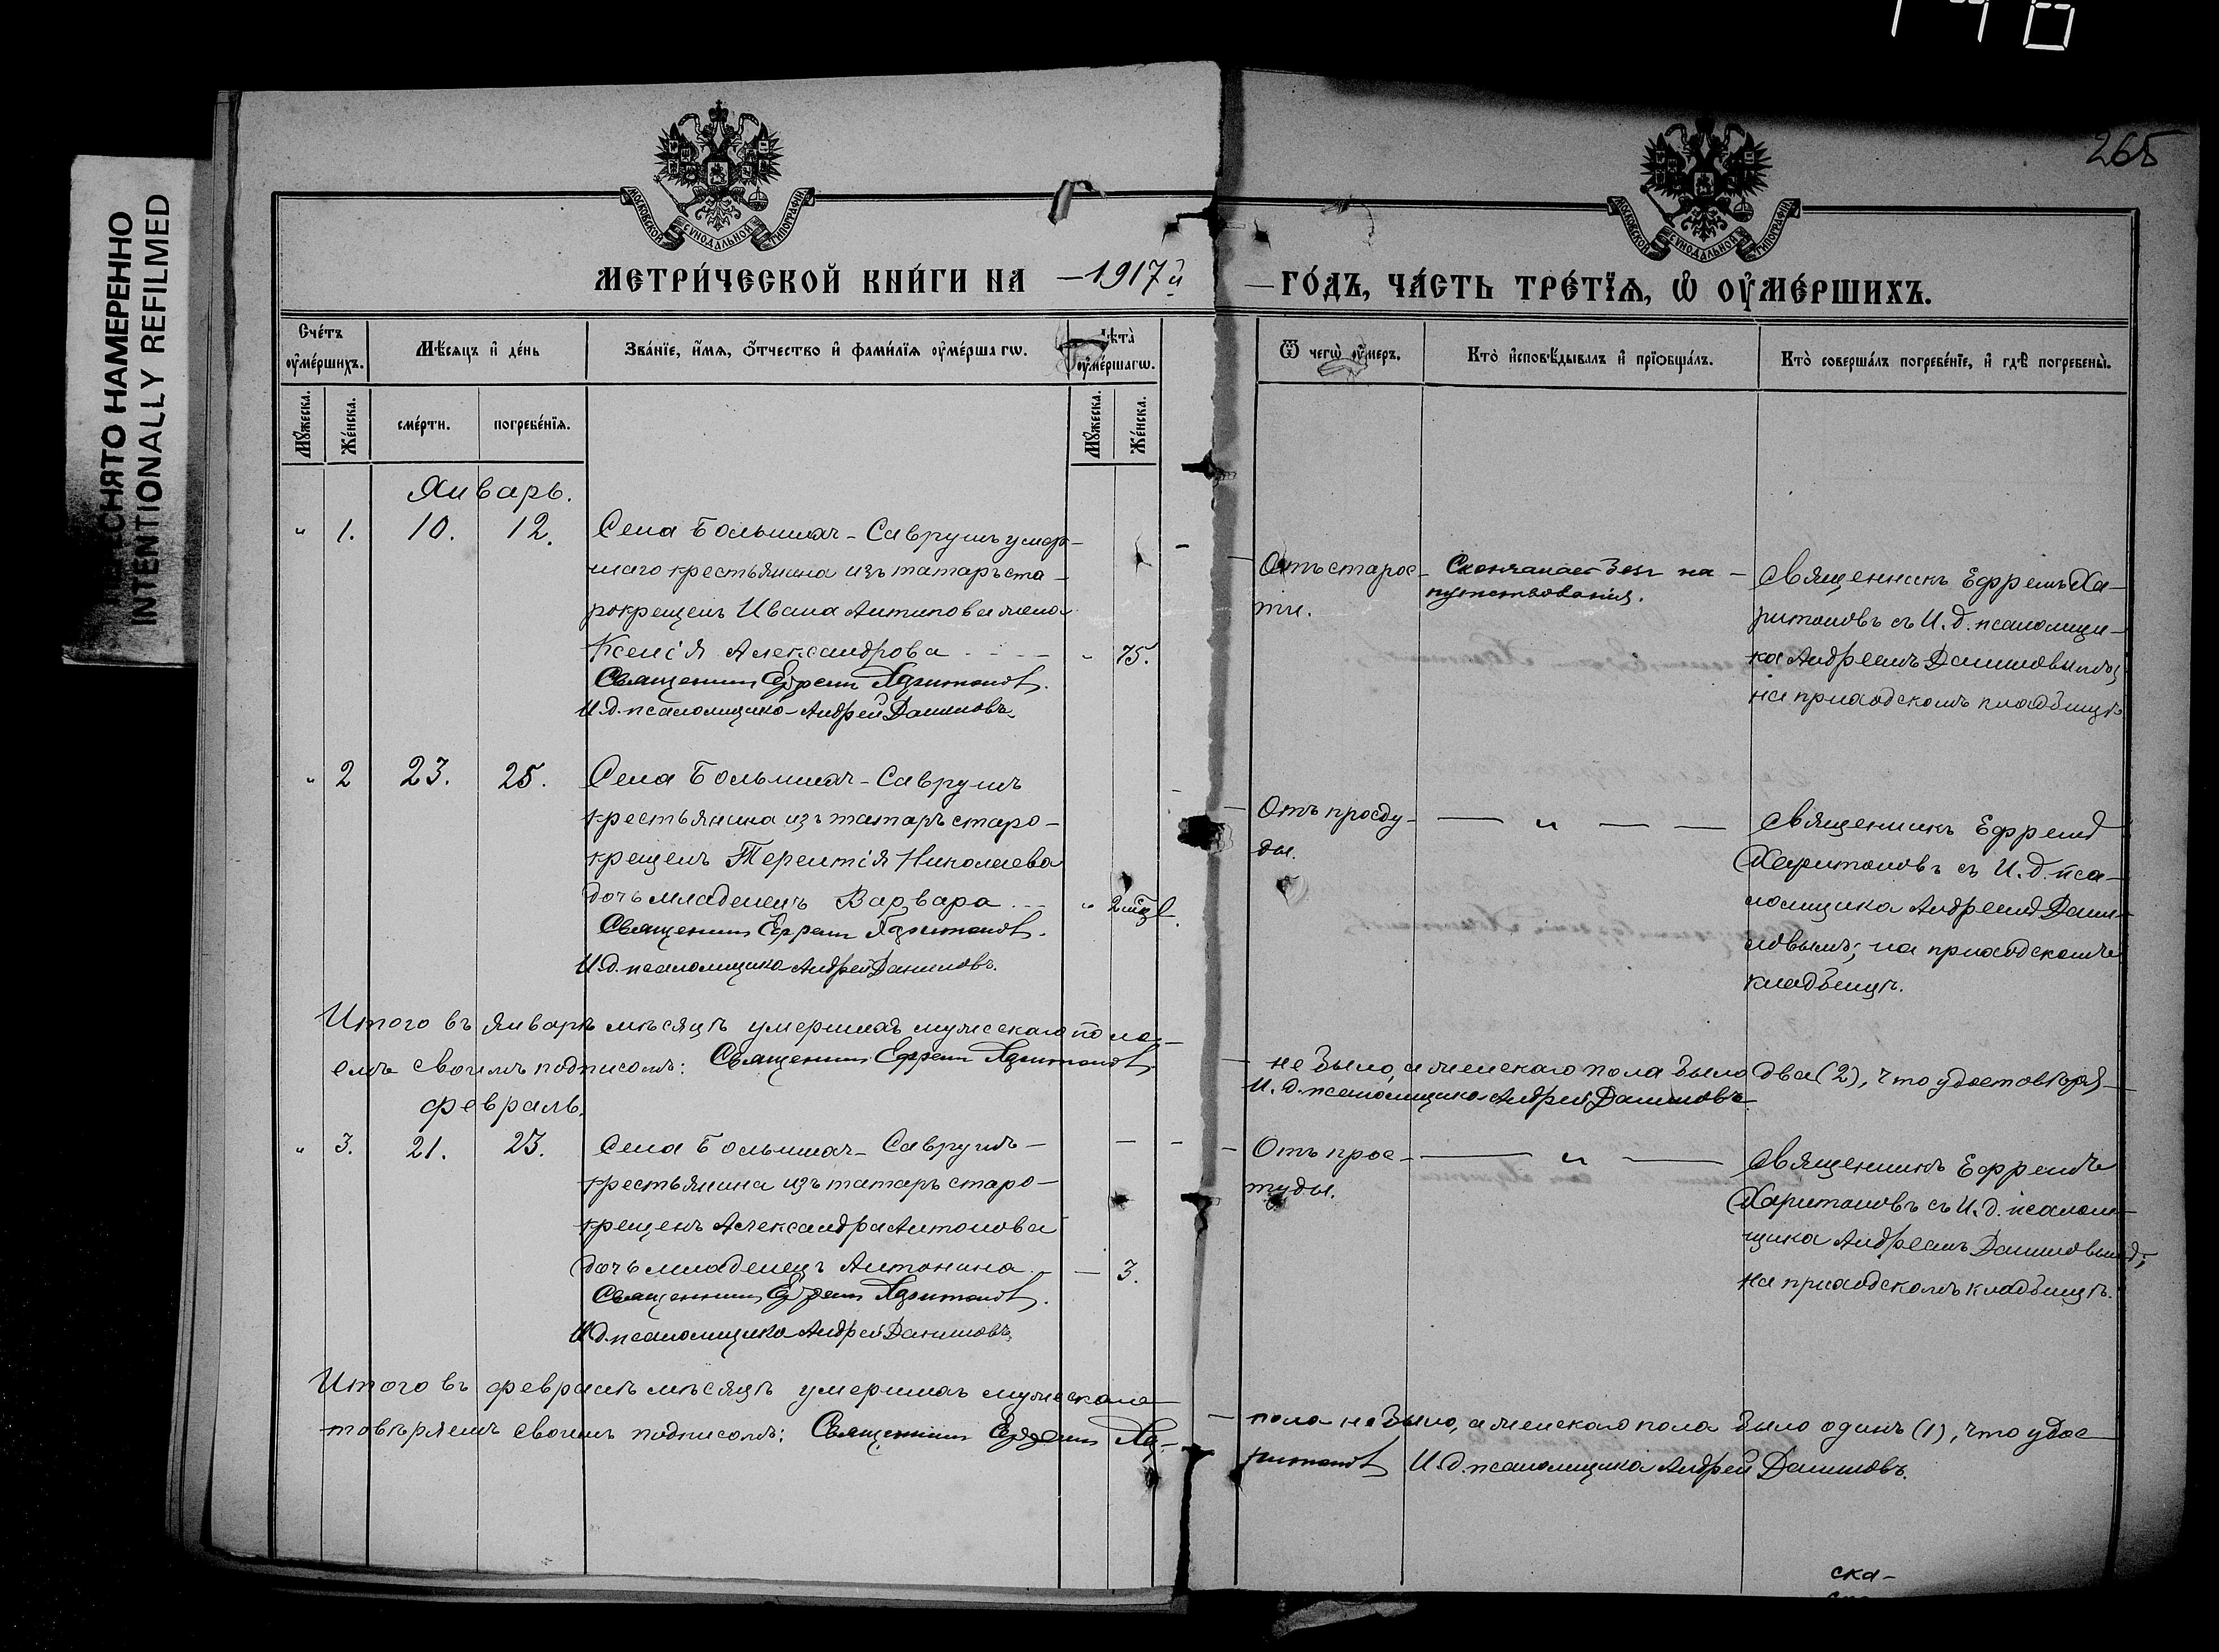 ПЕРЕСНЯТО НАМЕРЕННО
INTENTIONALLY REFILMED
265
МОСКОВСКОЙ СУНОДАЛЬНОЙ ТИПОГРАФІИ
МОСКОВСКОЙ СУНОДАЛЬНОЙ ТИПОГРАФІИ
МЕТРИ́ЧЕСКОЙ КНИ́ГИ НА —1917й
—ГО́ДЪ, ЧА́СТЬ ТРЕ́ТЇѦ, Ѡ҆ ОУ҆МЕ́РШИХЪ.
Сче́тъ оу҆ме́ршихъ.
Мѣ́сѧцъ и҆ де́нь
Зва́нїе, и҆́мѧ, о҆́тчество и҆ фами́лїѧ оу҆ме́ршагѡ.
Лѣ́та оу҆ме́ршагѡ.
Ѿ чегѡ̀ оу҆́меръ.
Кто̀ и҆сповѣ́дывалъ и҆ прїѡбща́лъ.
Кто̀ соверша́лъ погребе́нїе, и҆ гдѣ̀ погребены̀.
Мꙋ́жеска.
Же́нска.
сме́рти.
погребе́нїѧ.
Мꙋ́жеска.
Же́нска.
Январь.
" 1. 10. 12. Села Большихъ-Саврушъ умер-
шаго крестьянина изъ татаръ ста-
рокрещенъ Ивана Антипова жена
Ксенія Александрова - - - - " 75.
Священникъ Ефремъ Харитоновъ.
И.д. псаломщика Андрей Даниловъ.
Отъ старос-
ти.
Скончалась безъ на-
путствованія.
Священникъ Ефремъ Ха-
ритоновъ съ И.д. псаломщи-
ка Андреемъ Даниловымъ;
на приходскомъ кладбищѣ
" 2 23. 25. Села Большихъ-Саврушъ
крестьянина изъ татаръ старо-
крещенъ Терентія Николаева
дочь младенецъ Варвара - - " 2 мѣс.
Священникъ Ефремъ Харитоновъ.
И.д. псаломщика Андрей Даниловъ.
Отъ просту-
ды.
— " — —
Священникъ Ефремъ
Харитоновъ съ И.д. пса-
ломщика Андреемъ Дани-
ловымъ; на приходскомъ
кладбищѣ.
Итого въ январѣ мѣсяцѣ умершихъ мужескаго пола —
— не было, а женскаго пола было два (2), что удостовѣря-
емъ своимъ подписомъ: Священникъ Ефремъ Харитоновъ
И.д. псаломщика Андрей Даниловъ
Февраль.
" 3. 21. 23. Села Большихъ-Саврушъ —
крестьянина изъ татаръ старо-
крещенъ Александра Антонова
дочь младенецъ Антонина — — 3.
Священникъ Ефремъ Харитоновъ.
И.д. псаломщика Андрей Даниловъ.
Отъ прос-
туды.
— " —
Священникъ Ефремъ
Харитоновъ съ И.д. псалом-
щика Андреемъ Даниловымъ;
на приходскомъ кладбищѣ.
Итого въ февралѣ мѣсяцѣ умершихъ мужескаго
— пола не было, а женскаго пола было одинъ (1), что удос-
товѣряемъ своимъ подписомъ: Священникъ Ефремъ Ха-
ритоновъ И.д. псаломщика Андрей Даниловъ.
ска-